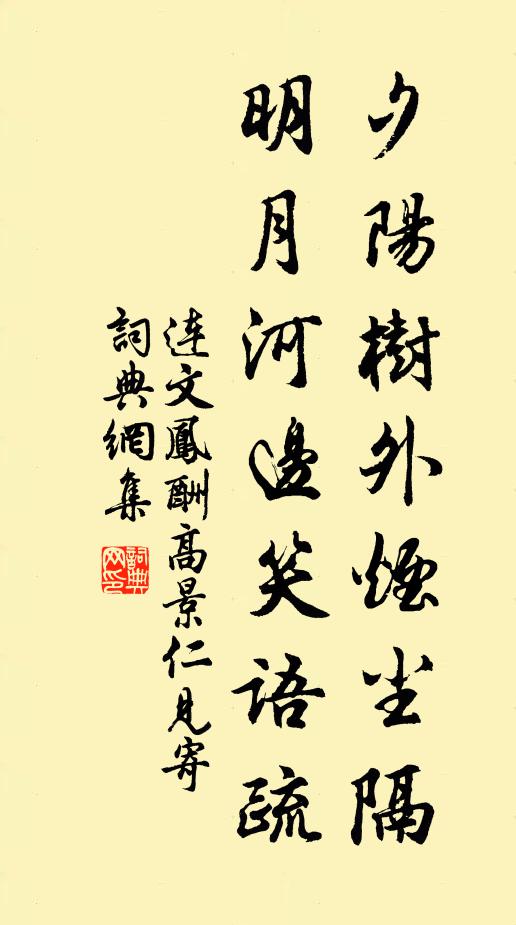 夕陽樹外煙尘隔
明月河邊笑語疏
连文鳳酬高景仁見寄
詞典網集
詞典网印